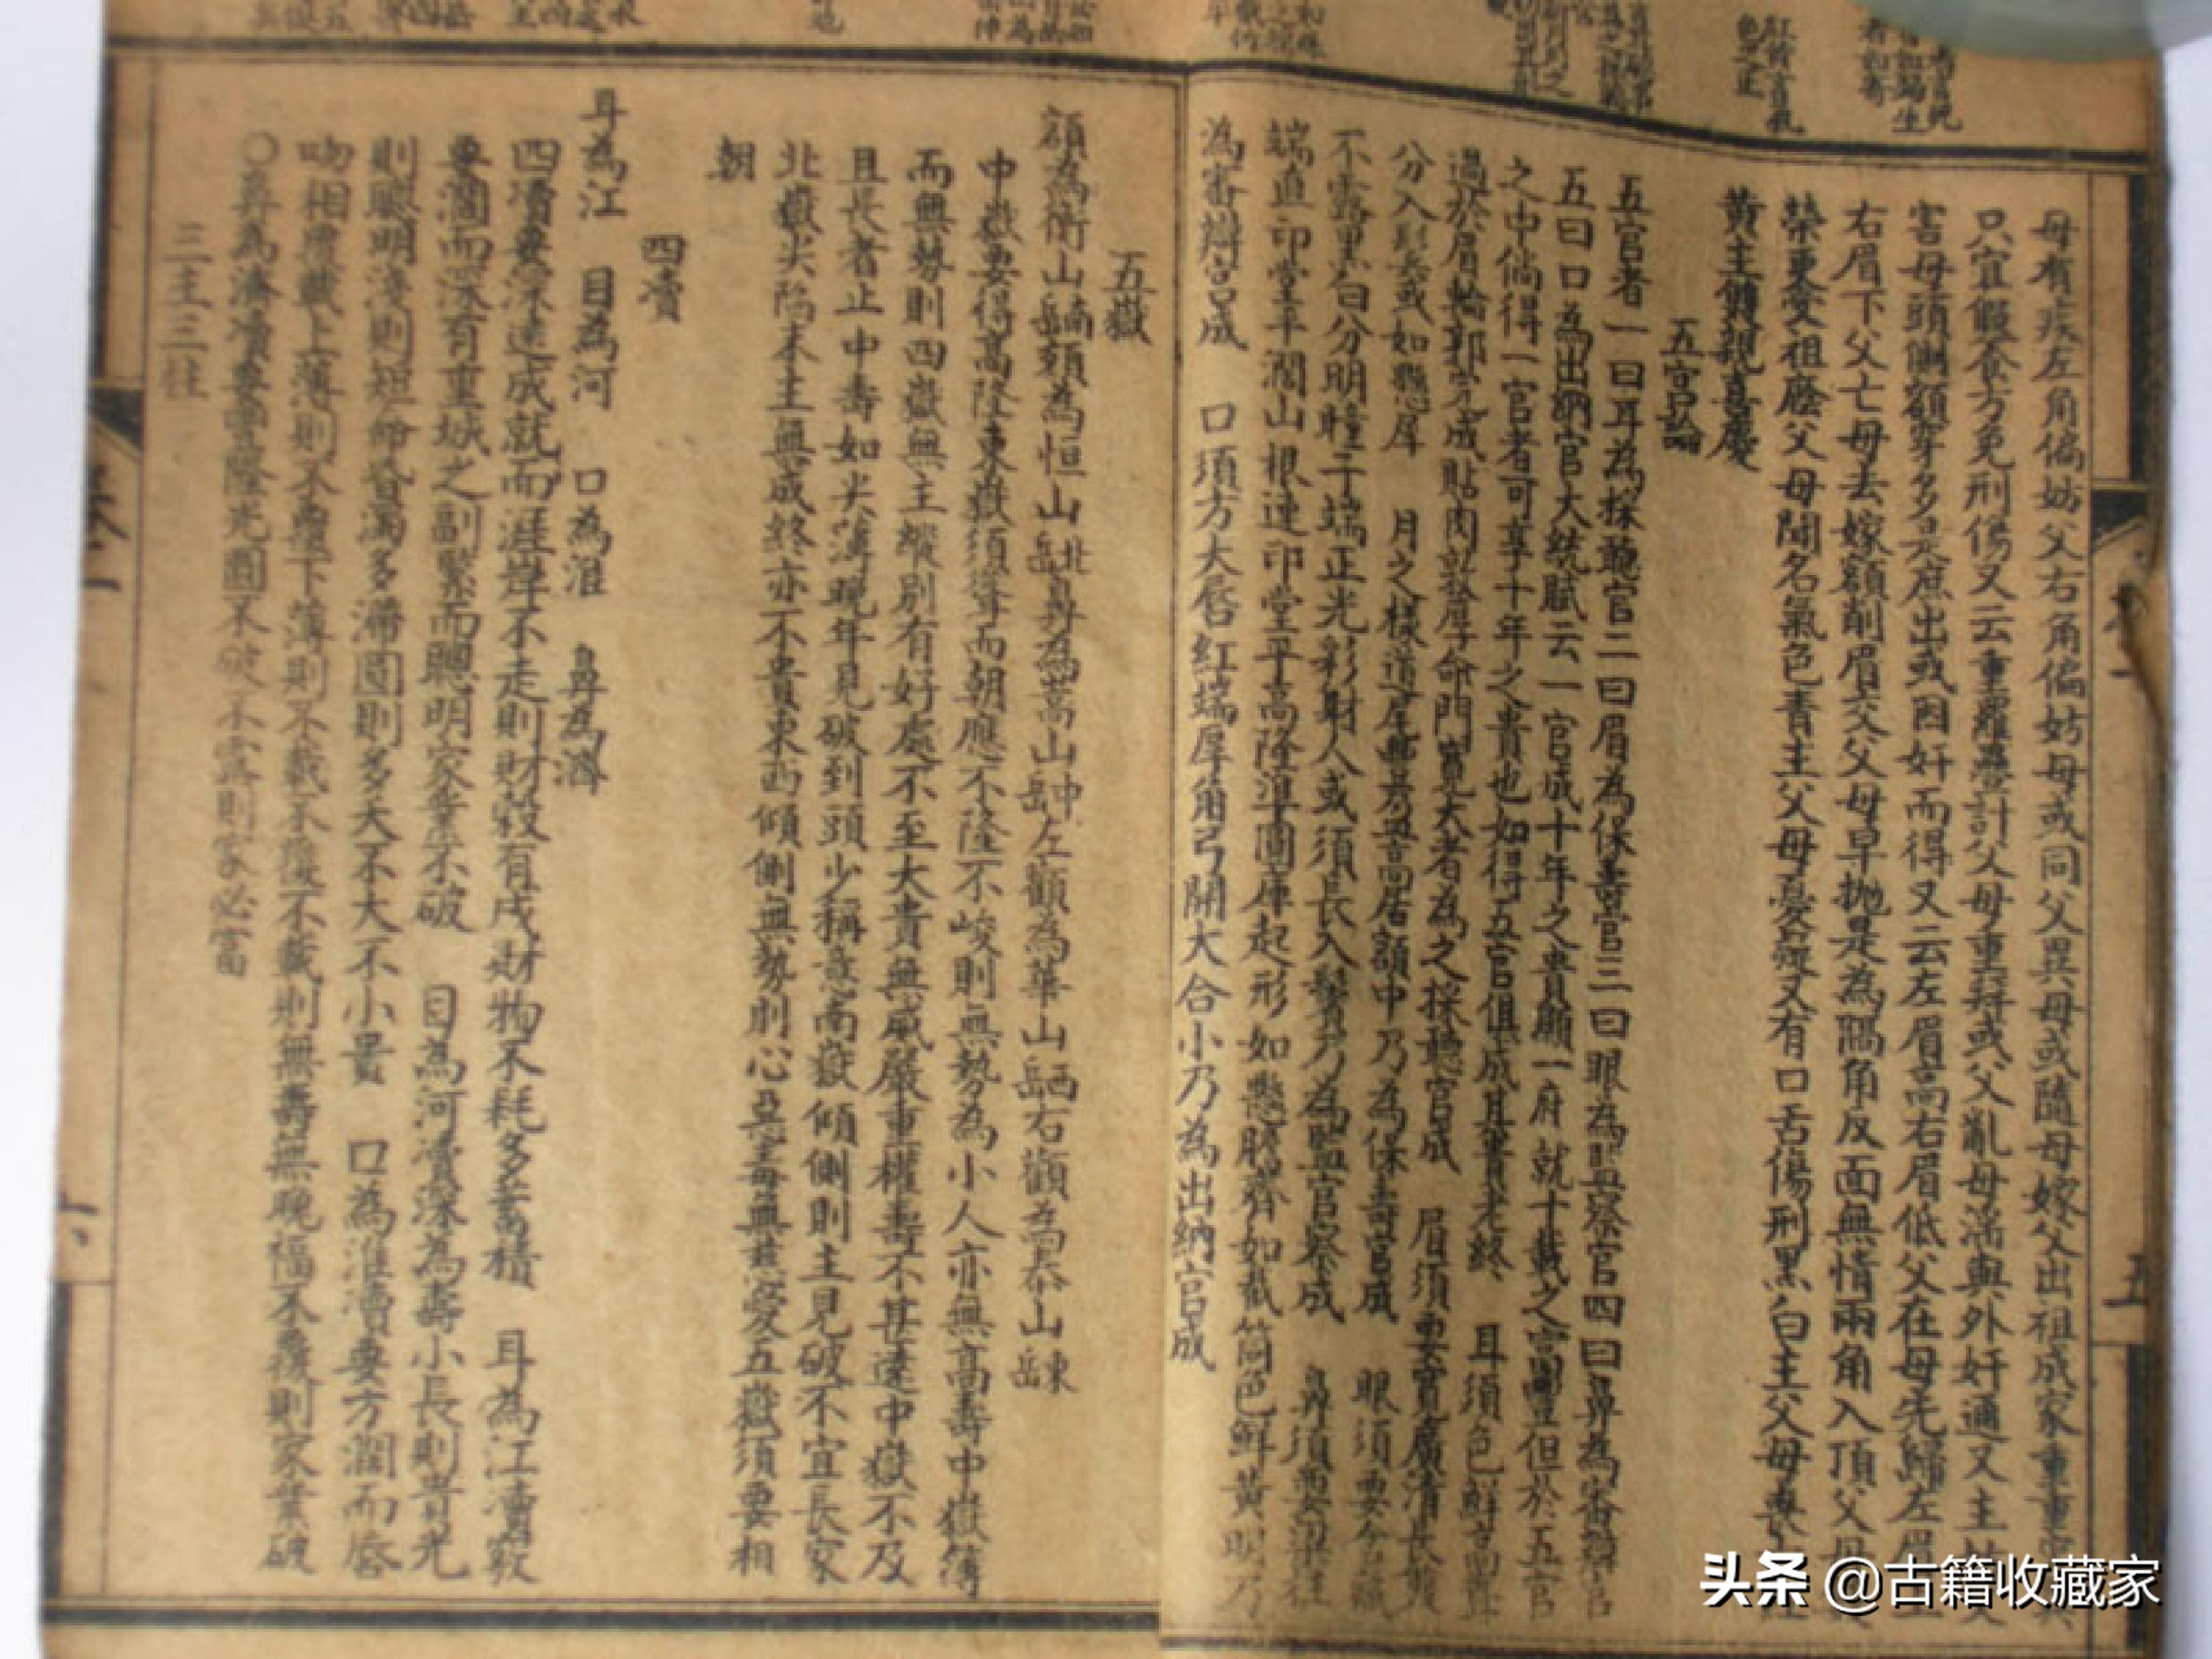 母有疾左角偏妨父右角偏妨母或同父異母或隨母嫁父出祖成家重重
只宜假食方免刑傷又云重羅疊計父母重拜或父亂母淫與外奸通又主
害母頭側額窄多是庶出或因奸而得又云左眉高右眉低父在母先歸左眉
右眉下父亡母去嫁額削眉交父母早抛是為隔角反面無情兩角入頂父母
榮更受祖廕父母聞名氣色青主父母憂疑又有口舌傷刑黑白主父母喪
黃主雙親喜慶
五官論
五官者一曰耳為採聽官二曰眉為保壽官三曰眼為監察官四曰鼻為審辯官
五曰口為出納官大統賦云一官成十年之貴顯一府就十載之富豐但於五官
之中倘得一官者可享十年之貴也如得五官俱成其貴老終 耳須色鮮高聳
過於眉輪郭完成貼肉敦厚命門寬大者為之採聽官成 眉須要寬廣清長雙
分入鬢或如懸犀 月之樣首尾豐盈高居額中乃為保壽官成 眼須要含藏
不露黑白分明瞳子端正光彩射人或須長入鬢乃為監官察成 鼻須要梁柱
端直印堂平濶山根連印堂平高隆準圓庫起形如懸膽齊如截筒色鮮黃明乃
為審辯官成 口須方大唇紅端厚角弓開大合小乃為出納官成
五嶽
額為衡山南岳頦為恒山北岳鼻為嵩山中岳左顴為華山西岳右顴為泰山東岳
中嶽要得高隆東嶽須聳而朝應不隆不峻則無勢為小人亦無高壽中嶽薄
而無勢則四嶽無主縱別有好處不至大貴無威嚴重權壽不甚遠中嶽不及
且長者止中壽如尖薄晚年見破到頭少稱意南嶽傾側則主見破不宜長家
北嶽尖陷末主無成終亦不貴東西傾側無勢則心惡毒無慈愛五嶽須要相
朝
四瀆
耳為江 目為河 口為淮 鼻為濟
四瀆要深遠成就而涯岸不走則財穀有成財物不耗多蓄積 耳為江瀆竅
要濶而深有重城之副緊而聰明家業不破 目為河瀆深為壽小長則貴光
則聰明淺則短命昏濁多滯圓則多夭不大不小貴 口為淮瀆要方濶而唇
吻相覆載上薄則不覆下薄則不載不覆不載則無壽無晚福不覆則家業破
〇鼻為濟瀆要豐隆光圓不破不露則家必富
三主三柱
卷一
六
五
头条 @古籍收藏家